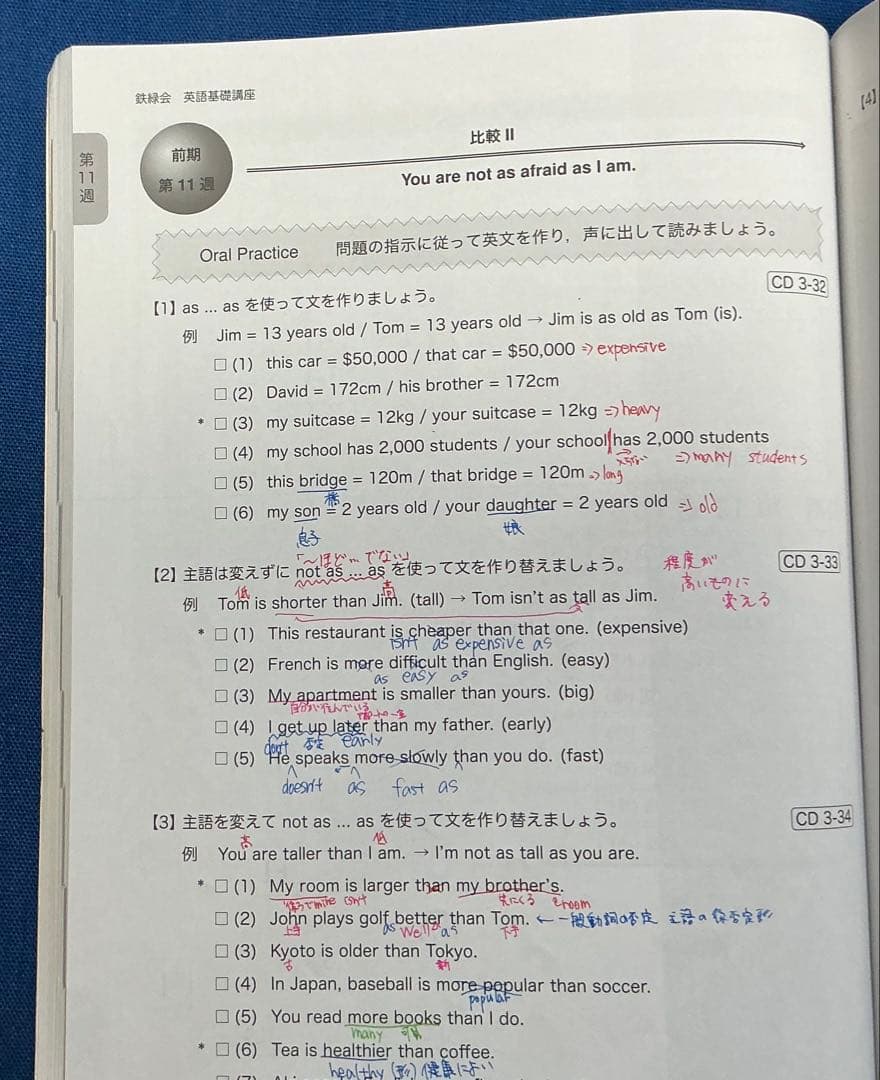 鉄緑会 英語基礎講座
[4]
第11週
前期
第11週
比較 II
You are not as afraid as I am.
Oral Practice 問題の指示に従って英文を作り，声に出して読みましょう。
CD 3-32
【1】as ... as を使って文を作りましょう。
例 Jim = 13 years old / Tom = 13 years old → Jim is as old as Tom (is).
□ (1) this car = $50,000 / that car = $50,000 ⇒ expensive
□ (2) David = 172cm / his brother = 172cm
* □ (3) my suitcase = 12kg / your suitcase = 12kg ⇒ heavy
□ (4) my school has 2,000 students / your school has 2,000 students
⇒ many students
□ (5) this bridge = 120m / that bridge = 120m ⇒ long
橋
□ (6) my son = 2 years old / your daughter = 2 years old ⇒ old
息子 娘
「〜ほど…でない」
CD 3-33
【2】主語は変えずに not as ... as を使って文を作り替えましょう。
程度が高いものに変える
低 高
例 Tom is shorter than Jim. (tall) → Tom isn't as tall as Jim.
* □ (1) This restaurant is cheaper than that one. (expensive)
isn't as expensive as
□ (2) French is more difficult than English. (easy)
as easy as
□ (3) My apartment is smaller than yours. (big)
□ (4) I get up later than my father. (early)
don't 否定 early
□ (5) He speaks more slowly than you do. (fast)
doesn't as fast as
CD 3-34
【3】主語を変えて not as ... as を使って文を作り替えましょう。
高 低
例 You are taller than I am. → I'm not as tall as you are.
* □ (1) My room is larger than my brother's.
isn't 先にくる room
□ (2) John plays golf better than Tom. ← 一般動詞の否定 主語の後否定形
上手 as well as 下手
□ (3) Kyoto is older than Tokyo.
古 新
□ (4) In Japan, baseball is more popular than soccer.
popular
□ (5) You read more books than I do.
many
* □ (6) Tea is healthier than coffee.
healthy (形) 健康によい